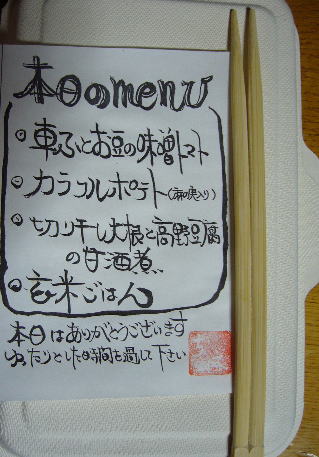 本日のmenu
◎車ふとお豆の味噌トマト
◎カラフルポテト(麻の実入り)
◎切り干し大根と高野豆腐
の甘酒煮
◎玄米ごはん
本日はありがとうございます
ゆったりとした時間を過して下さい